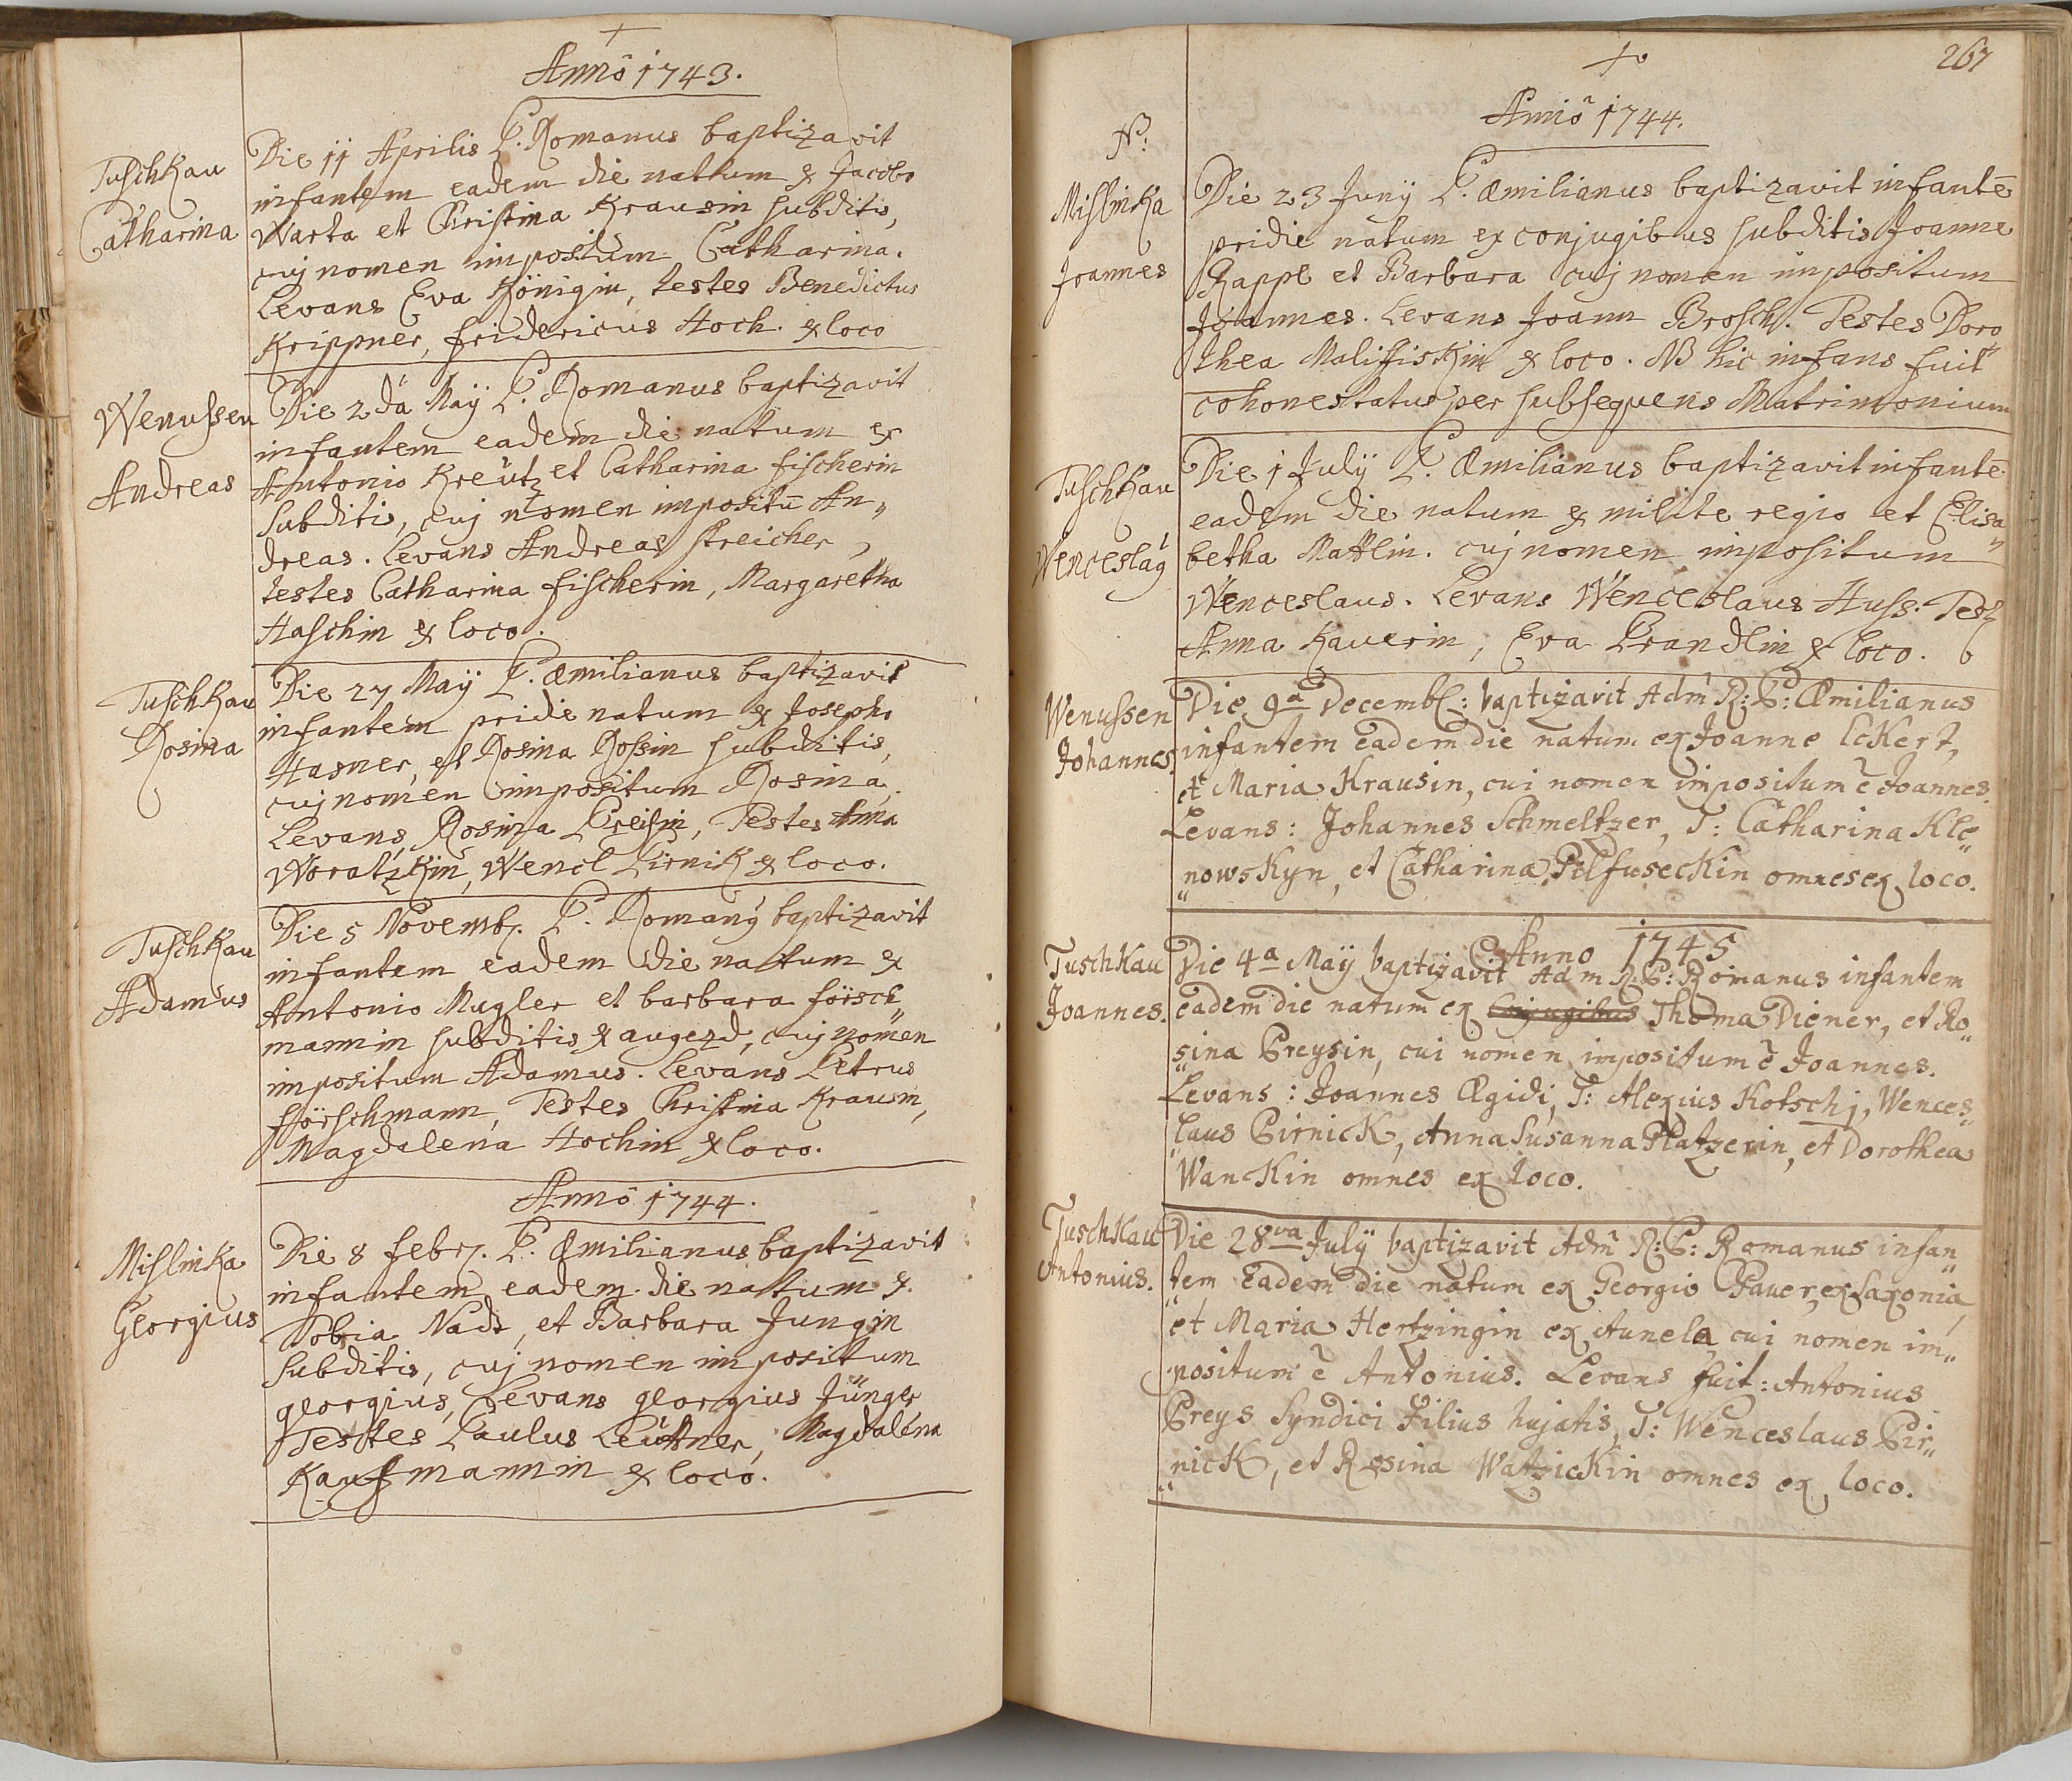 Anno 1743.
Tuschkau
Catharina
Die 11 Aprilis P. Romanus baptizavit
infantem eadem die natum ex Jacobo
Warta et Christina Krausin subditis,
cuj nomen impositum Catharina.
Levans Eva Königin, testes Benedictus
Krippner, fridericus Hoch. ex loco
Wenussen
Andreas
Die 2da Maÿ P. Romanus baptizavit
infantem eadem die natum ex
Antonio Kreutz et Catharina fischerin
subditis, cuj nomen impositū An„
dreas. Levans Andreas streicher,
testes Catharina fischerin, Margaretha
Haschin ex loco.
Tuschkau
Rosina
Die 27 Maÿ P. Æmilianus baptizavit
infantem pridie natum ex Josepho
Hasner, et Rosina Rossin subditis,
cuj nomen impositum Rosina,
Levans, Rosina Preisin, Testes Anna
Woratzkin, Wencl Pirnik ex loco.
Tuschkau
Adamus
Die 5 Novemb. P. Romanꝰ baptizavit
infantem eadem die natum ex
Antonio Mugler et barbara försch„
mannin subditis ex augezd, cuj nomen
impositum Adamus. Levans Petrus
Hörschmann, Testes Christina Krausin,
Magdalena Hochin ex loco.
Anno 1744.
Mislinka
Georgius
Die 8 febr. P. Æmilianus baptizavit
infantem eadem die natum ex
Tobia Nadt, et Barbara Jungin
subditis, cuj nomen impositum
georgius, Levans georgius Jünger
Testes Paulus Leuttner, Magdalena
Kaufmannin ex loco.
267
Anno 1744.
NB
Mislinka
Joannes
Die 23 Junÿ P. Æmilianus baptizavit infantē
pridie natum ex conjugibus subditis Joanne
Rappl et Barbara cuj nomen impositum
Joannes. Levans Joann Brosch. Testes Doro
thea Maliffiskin ex loco. NB hic infans fuit
cohonestatus per subsequens Matrimonium
Tuschkau
Wenceslaꝰ
Die 1 Julÿ P. Æmilianus baptizavit infantē
eadem die natum ex milite regio et Elisa„
betha Mattlin. cuj nomen impositum
Wenceslaus. Levans Wenceslaus Huss. Test
Anna Kauerin, Eva Brandlin ex loco.
Wenussen
Johannes.
Die 9a Decemb: baptizavit Adm R: P: Æmilianus
infantem eadem die natum ex Joanne Eckert,
et Maria Krausin, cui nomen impositum ē Joannes.
Levans: Johannes Schmeltzer, T: Catharina Kle„
„nowskyn, et Catharina Pilfuseckin omnes ex loco.
Anno 1745
Tuschkau
Joannes.
Die 4a Maÿ baptizavit Adm R: P: Romanus infantem
eadem die natum ex Conjugibus Thoma Diener, et Ro„
„sina Preysin, cui nomen impositum ē Joannes.
Levans: Joannes Ægidi, T: Alexius Kotschj, Wences„
„laus Pirnick, Anna Susanna Platzerin, et Dorothea
Wanckin omnes ex loco.
Tuschkau
Antonius.
Die 28va Julÿ baptizavit Adm R: P: Romanus infan„
„tem Eadem die natum ex Georgio Pauer, ex Saxonia,
et Maria Hertzingin ex Aunela, cui nomen im„
„positum ē Antonius. Levans fuit: Antonius
Preys Syndici Filius hujatis, T: Wenceslaus Pir„
„nick, et Rosina Watzickin omnes ex loco.